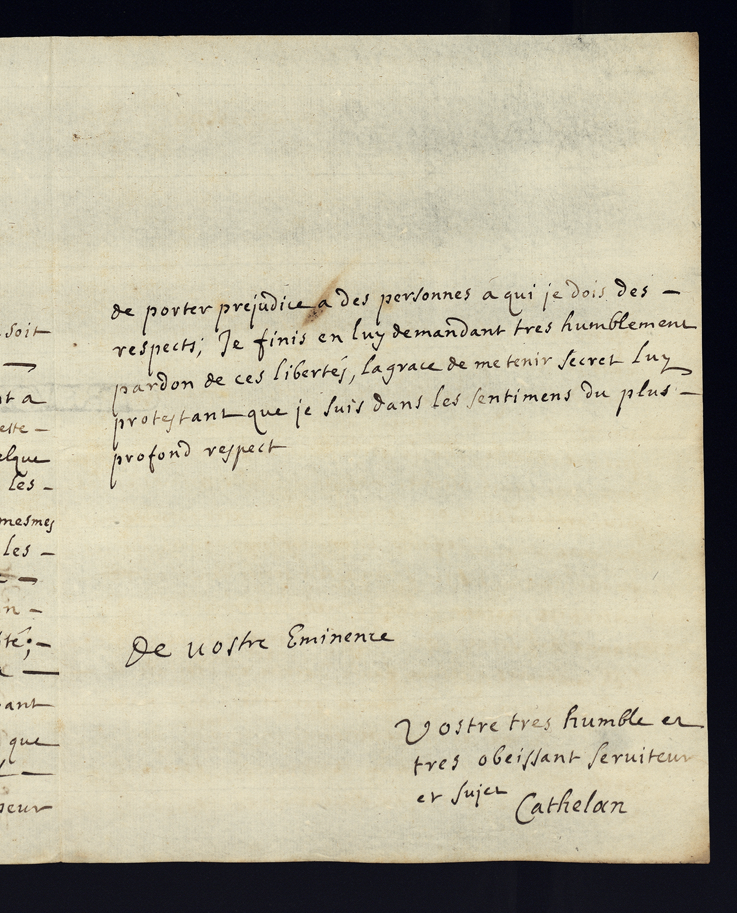 soit
a
elque
les -
mesmes
les -
n -
té; -
ant
que
peur
de porter prejudice a des personnes a qui je dois des -
respects; Je finis en luy demandant tres humblement
pardon de ces libertés, la grace de me tenir secret luy
protestant que je suis dans les sentimens du plus -
profond respect
De vostre Eminence
Vostre tres humble et
tres obeissant serviteur
et sujet
Cathelan